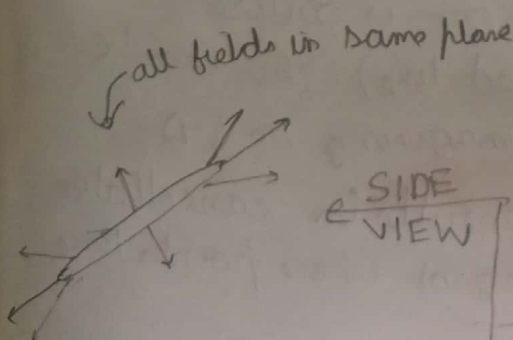 all fields in same plane
SIDE
VIEW